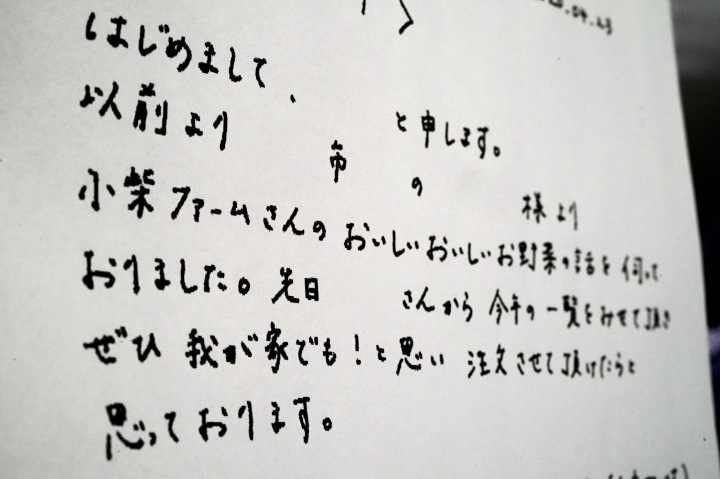 はじめまして、
と申します。
以前より 市 の 様より
小柴ファームさんのおいしいおいしいお野菜の話を伺って
おりました。先日 さんから今年の一覧をみせて頂き
ぜひ我が家でも!と思い 注文させて頂けたらと
思っております。